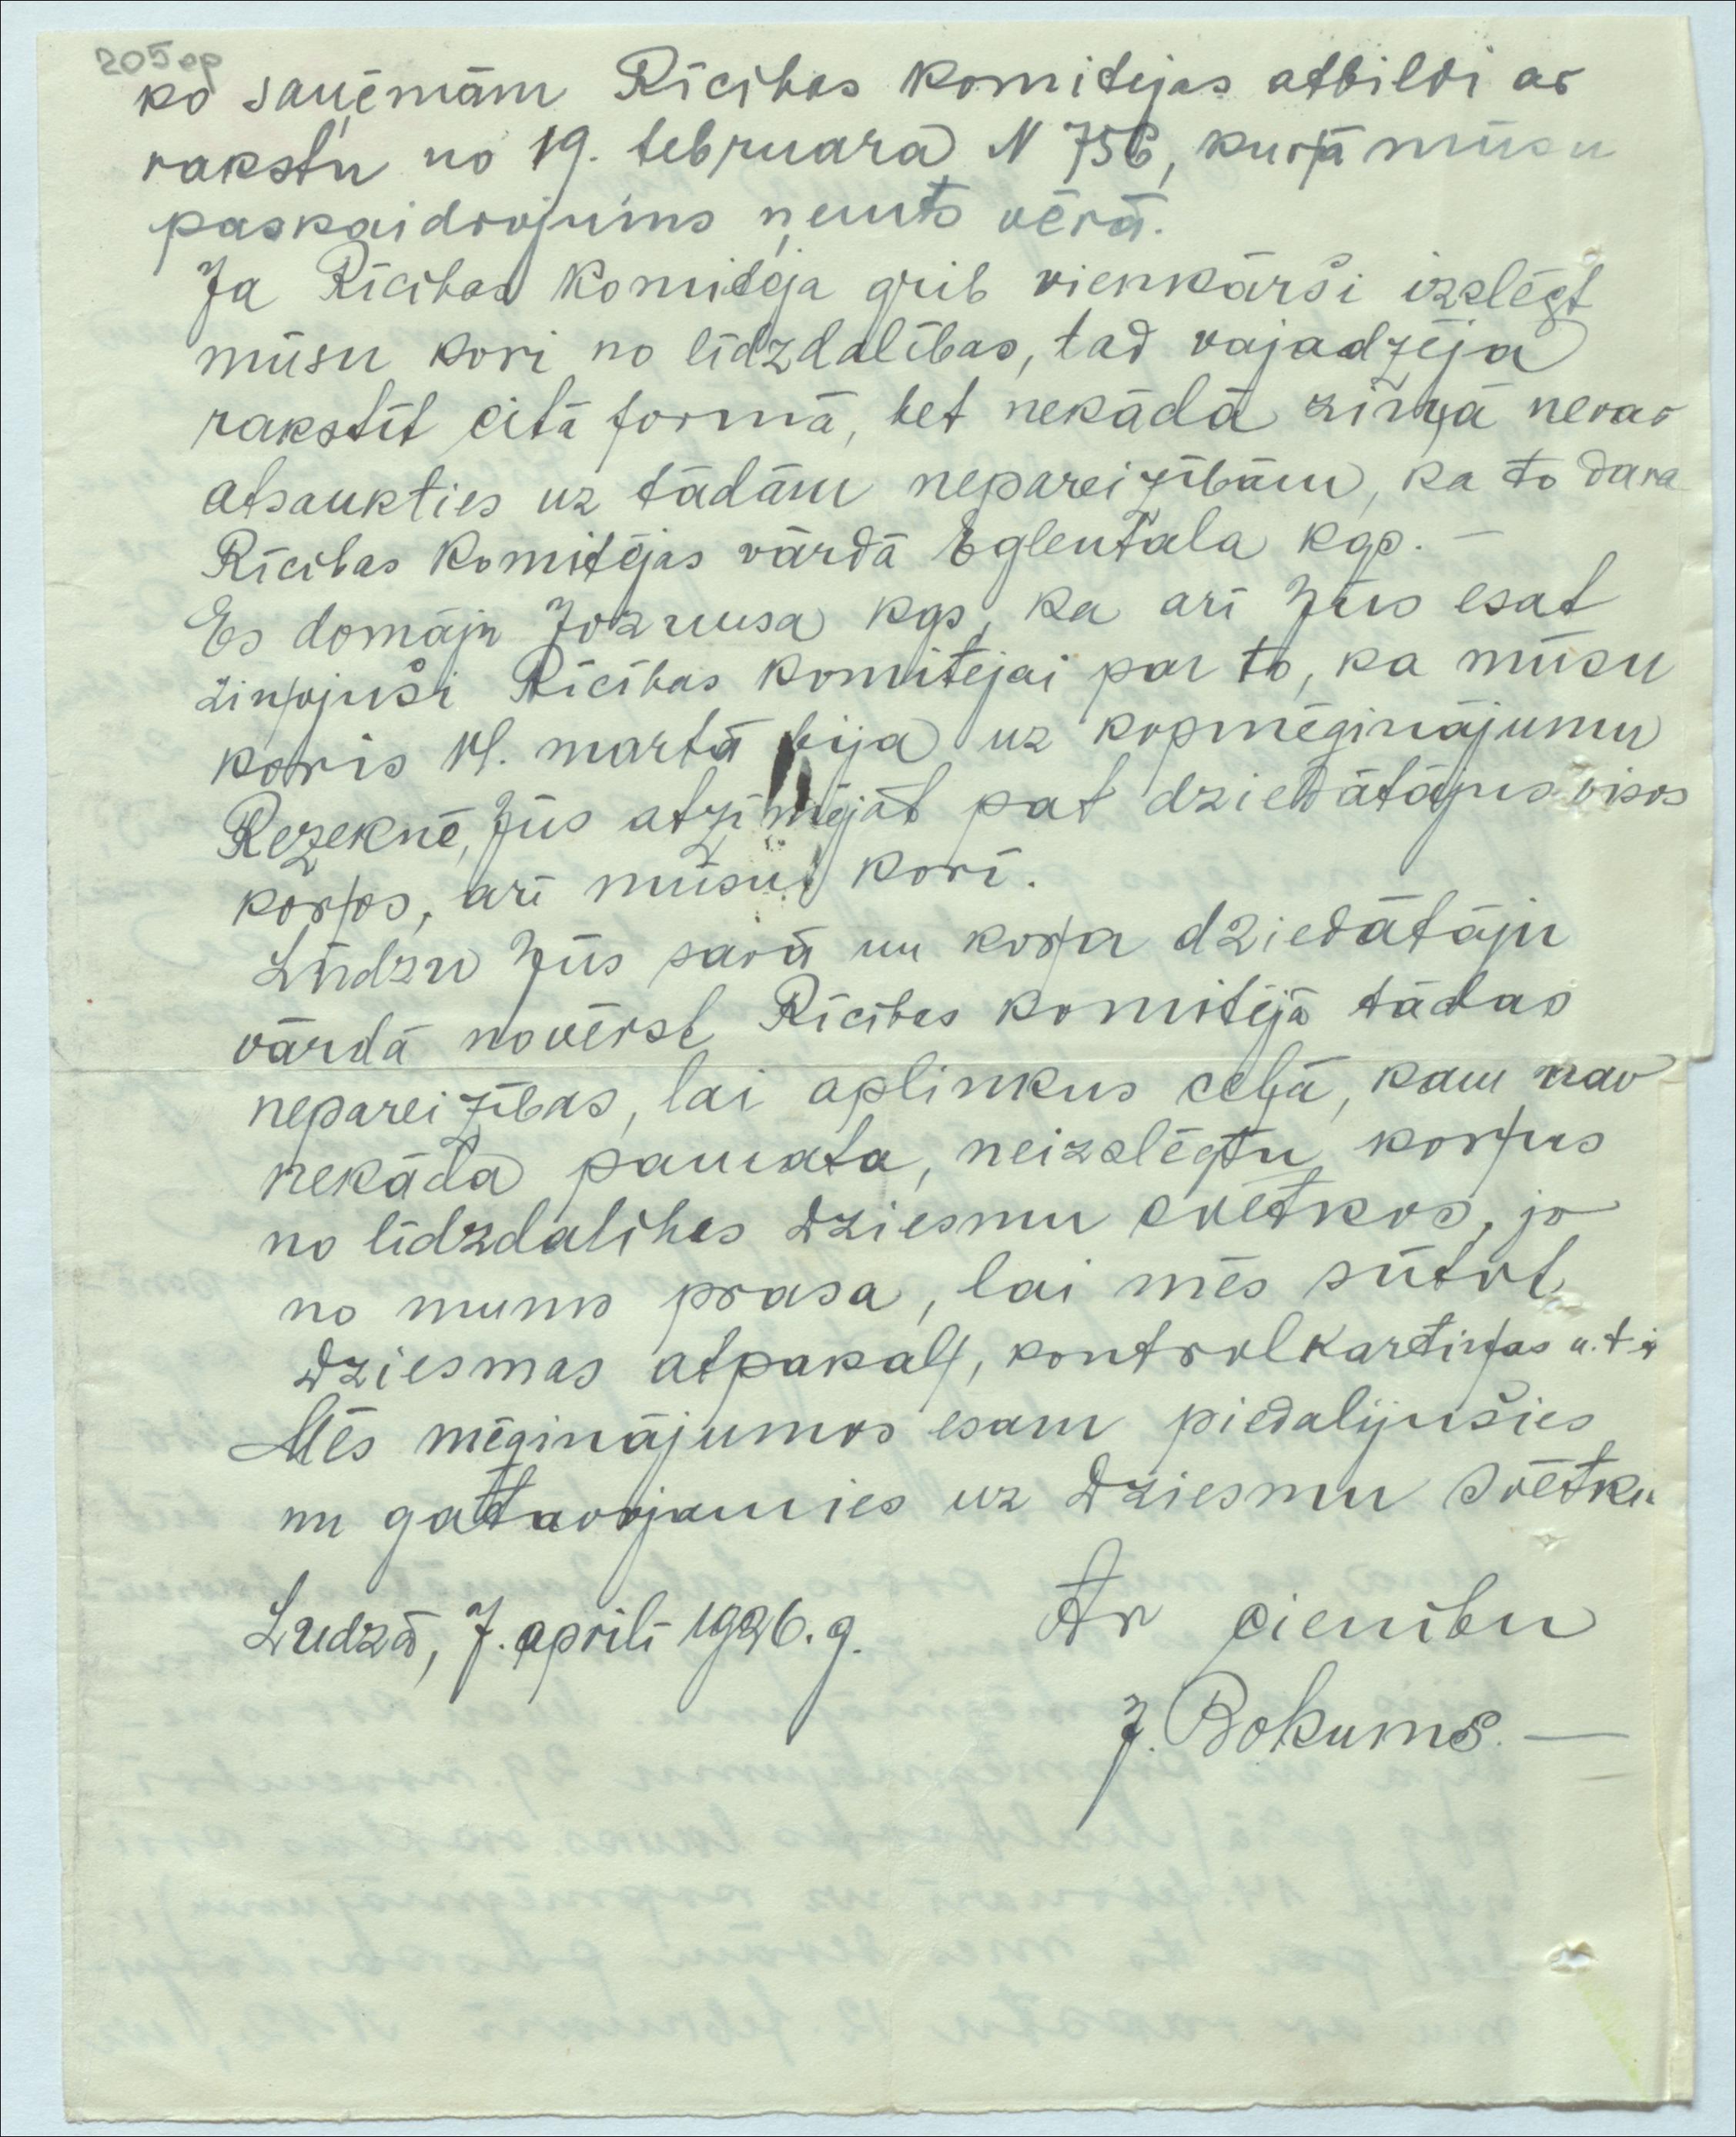 205 op
ko saņēmām Rīcības komitejas atbildi ar
rakstu no 19. februara N 756, kurŗā mūsu
paskaidrojums ņemts vērā.
Ja Rīcības komitēja grib vienkārši izslēgt
mūsu kori no līdzdalības, tad vajadzēja
rakstīt citā formā, bet nekādā ziņā nevar
atsaukties uz tādām nepareizībām, ka to dara
Rīcības komitējas vārdā Eglentala kgs. —
Es domāju Jozuusa kgs, ka arī Jūs esat
ziņojuši Rīcības komitējai par to, ka mūsu
koris 14. martā bija uz kopmēginājumu
Rezeknē, Jūs atzīmējāt pat dziedātājus visos
koŗos, arī mūsu korī.
Lūdzu Jūs savā un koŗa dziedātāju
vārdā novērst Rīcības komitējā tādas
nepareizības, lai aplinkus ceļā, kam nav
nekāda pamata, neizslēgtu koŗus
no līdzdalības Dziesmu svētkos, jo
no mums prasa, lai mēs sūtot
Dziesmas atpakaļ, kontrolkartiņas u.t.t.
Mēs mēginājumos esam piedalijušies
un gatavojamies uz Dziesmu svētku
Ludzā, 7. aprilī 1926. g. Ar cienību
J. Bokums. —